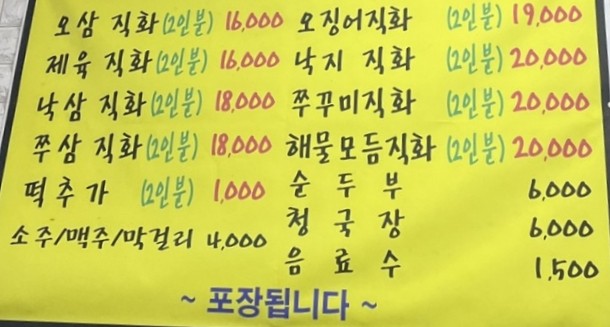 오삼 직화 (2인분) 16,000 오징어직화 (2인분) 19,000
제육 직화 (2인분) 16,000 낙지 직화 (2인분) 20,000
낙삼 직화 (2인분) 18,000 쭈꾸미직화 (2인분) 20,000
쭈삼 직화 (2인분) 18,000 해물모듬직화 (2인분) 20,000
떡추가 (2인분) 1,000 순두부 6,000
소주/맥주/막걸리 4,000 청국장 6,000
음료수 1,500
~ 포장됩니다 ~